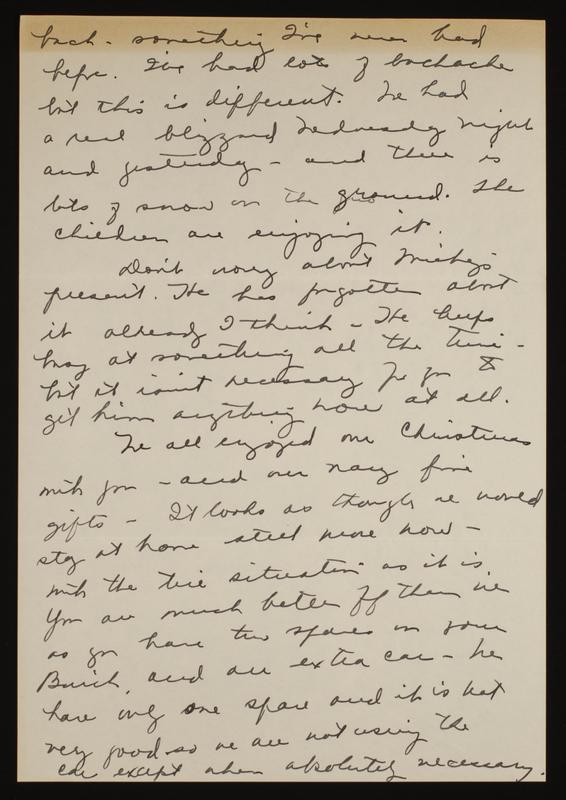 back - something I've never had
before. I've had lots of backache
but this is different. We had
a real blizzard Wednesday night
and yesterday - and there is
lots of snow on the ground. The
children are enjoying it.
Don't worry about Mickey's
present. He has forgotten about
it already I think - He keeps
busy at something all the time -
but it isn't necessary for you to
get him anything more at all.
We all enjoyed our Christmas
with you - and our many fine
gifts - It looks as though we would
stay at home still more now -
with the tire situation as it is.
You are much better off than we
as you have two spares on your
Buick, and an extra car - We
have only one spare and it is not
very good so we are not using the
car except when absolutely necessary.